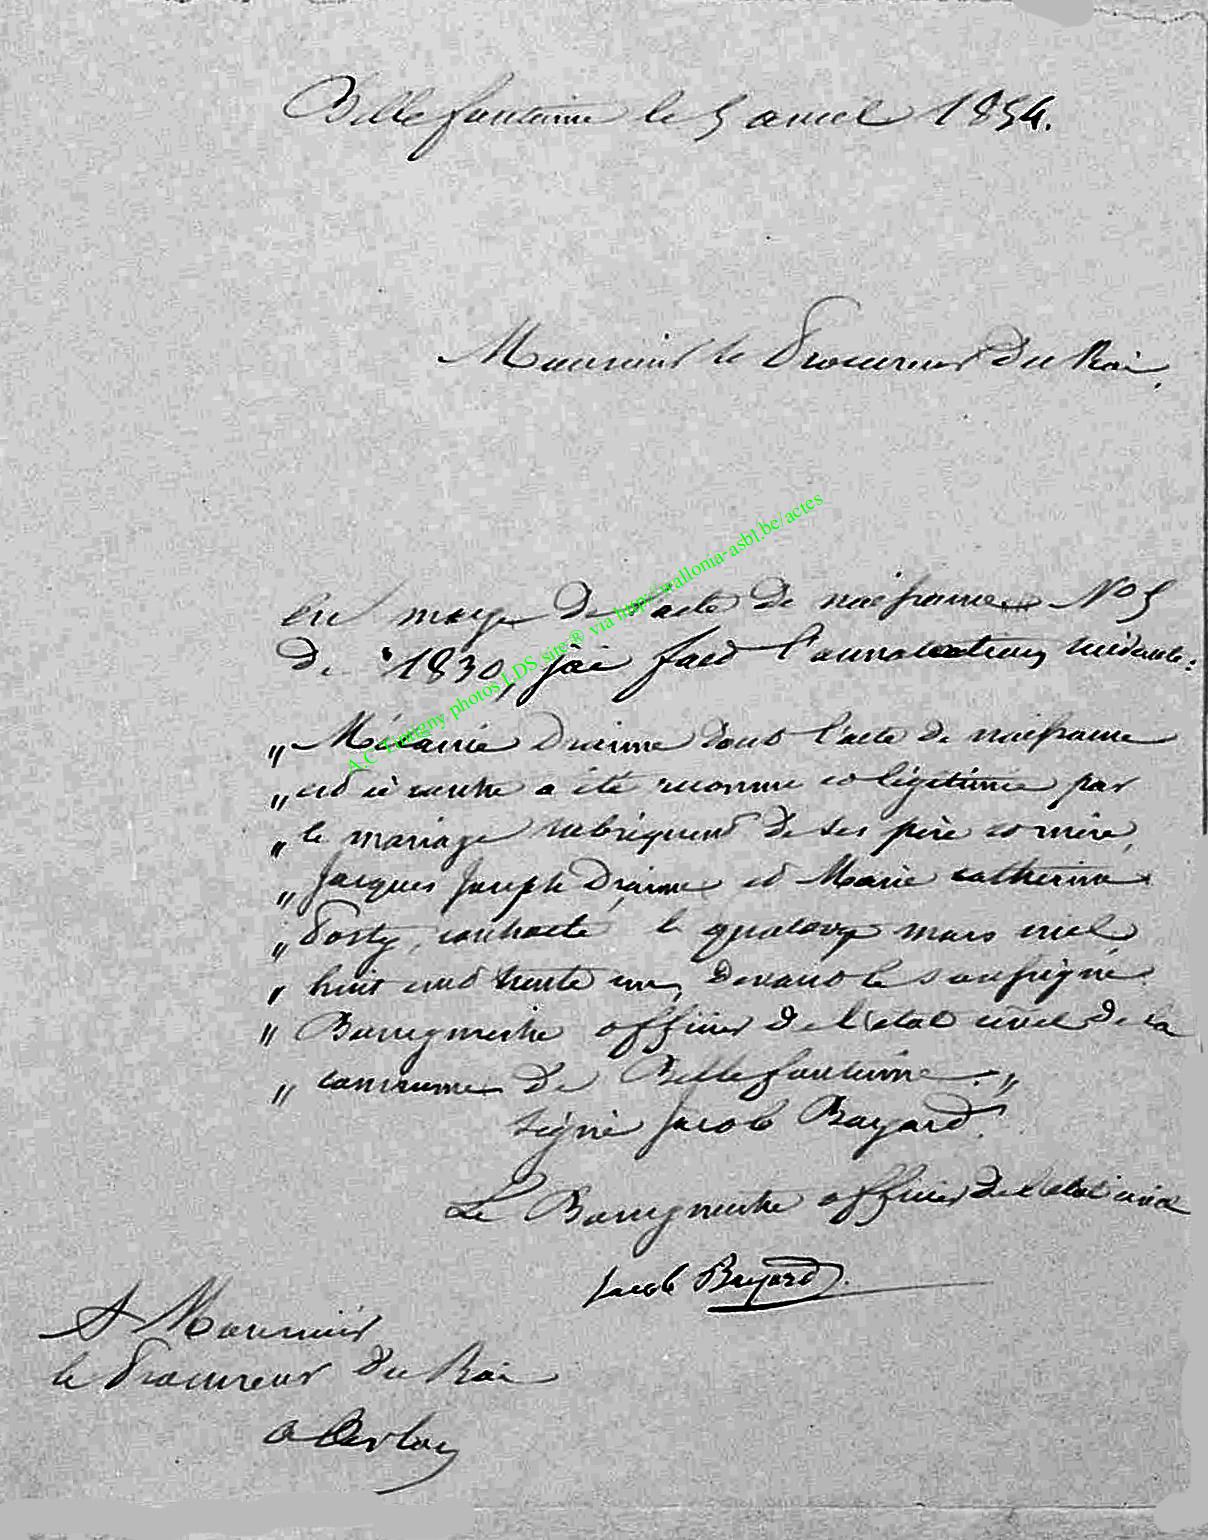 Bellefontaine le 5 avril 1854.
Monsieur le Procureur du Roi,
En marge de l'acte de naissance N° 5
de 1830, j'ai fait l'annotation suivante:
„ Mélanie Drienne dont l'acte de naissance
„ est ci contre a été reconnue et légitimée par
„ le mariage subséquent de ses père et mère,
„ Jacques Joseph Drienne et Marie Catherine
„ Posty, contracté le quatorze mars mil
„ huit cent trente un, devant le soussigné
„ Bourgmestre officier de l'état civil de la
„ commune de Bellefontaine. „
signé Jacob Bayard.
Le Bourgmestre officier de l'état civil
Jacob Bayard.
A Monsieur
le Procureur du Roi
a Arlon
A.C Tintigny photos LDS site ® via http://wallonia-asbl.be/actes